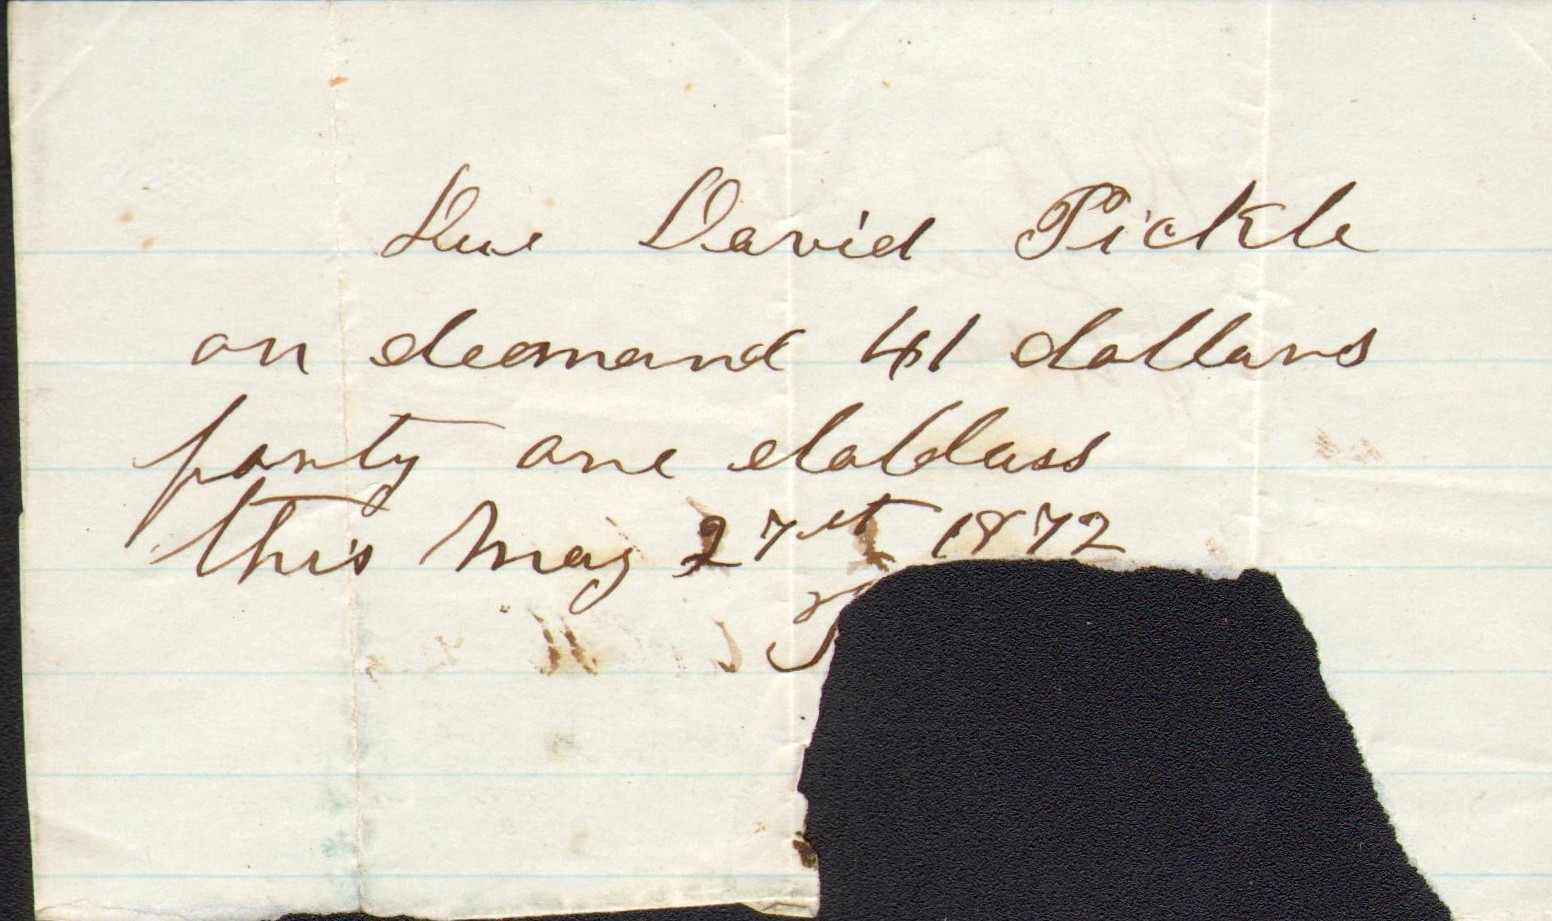 Due David Pickle
on deomand 41 dollars
forty one dollars
this May 27th 1872